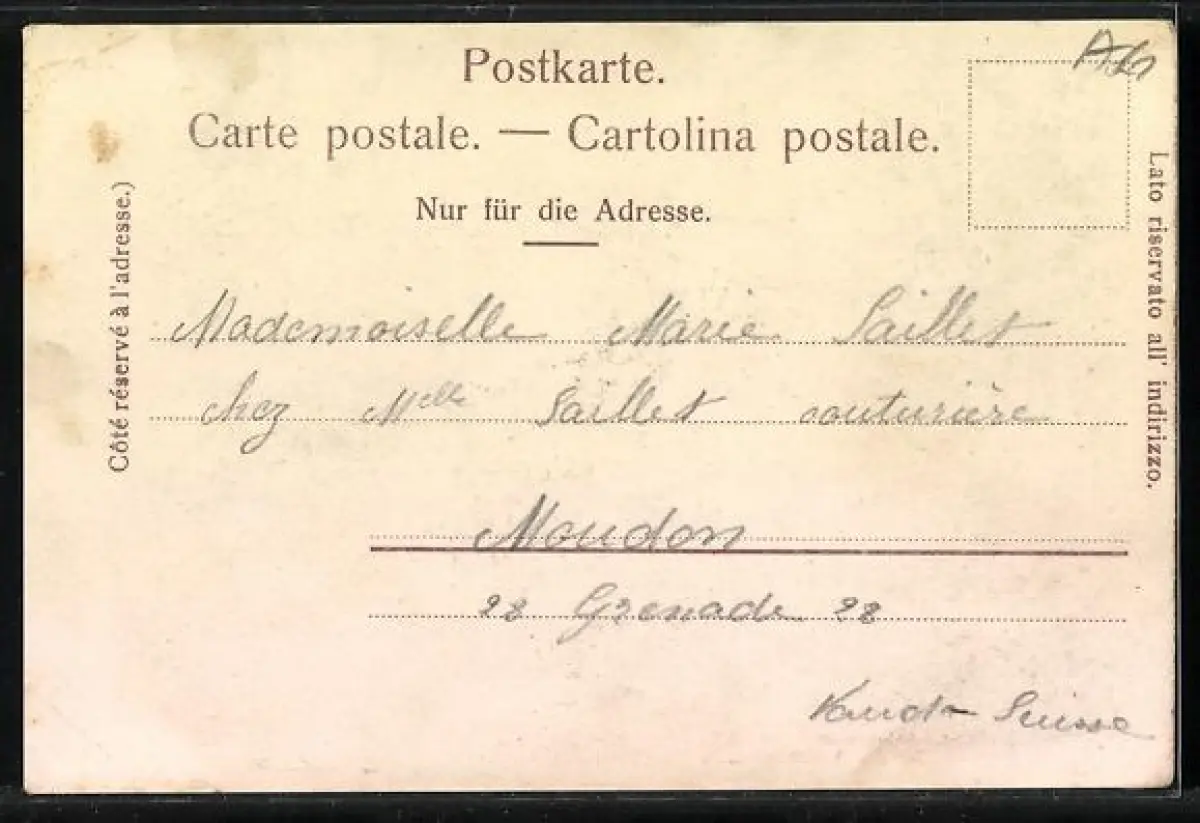 Postkarte.
Carte postale. — Cartolina postale.
Nur für die Adresse.
Côté réservé à l'adresse.)
Lato riservato all' indirizzo.
Mademoiselle Marie Saillet
chez Melle Saillet couturière
Moudon
28 Grenade 28
Vaud - Suisse